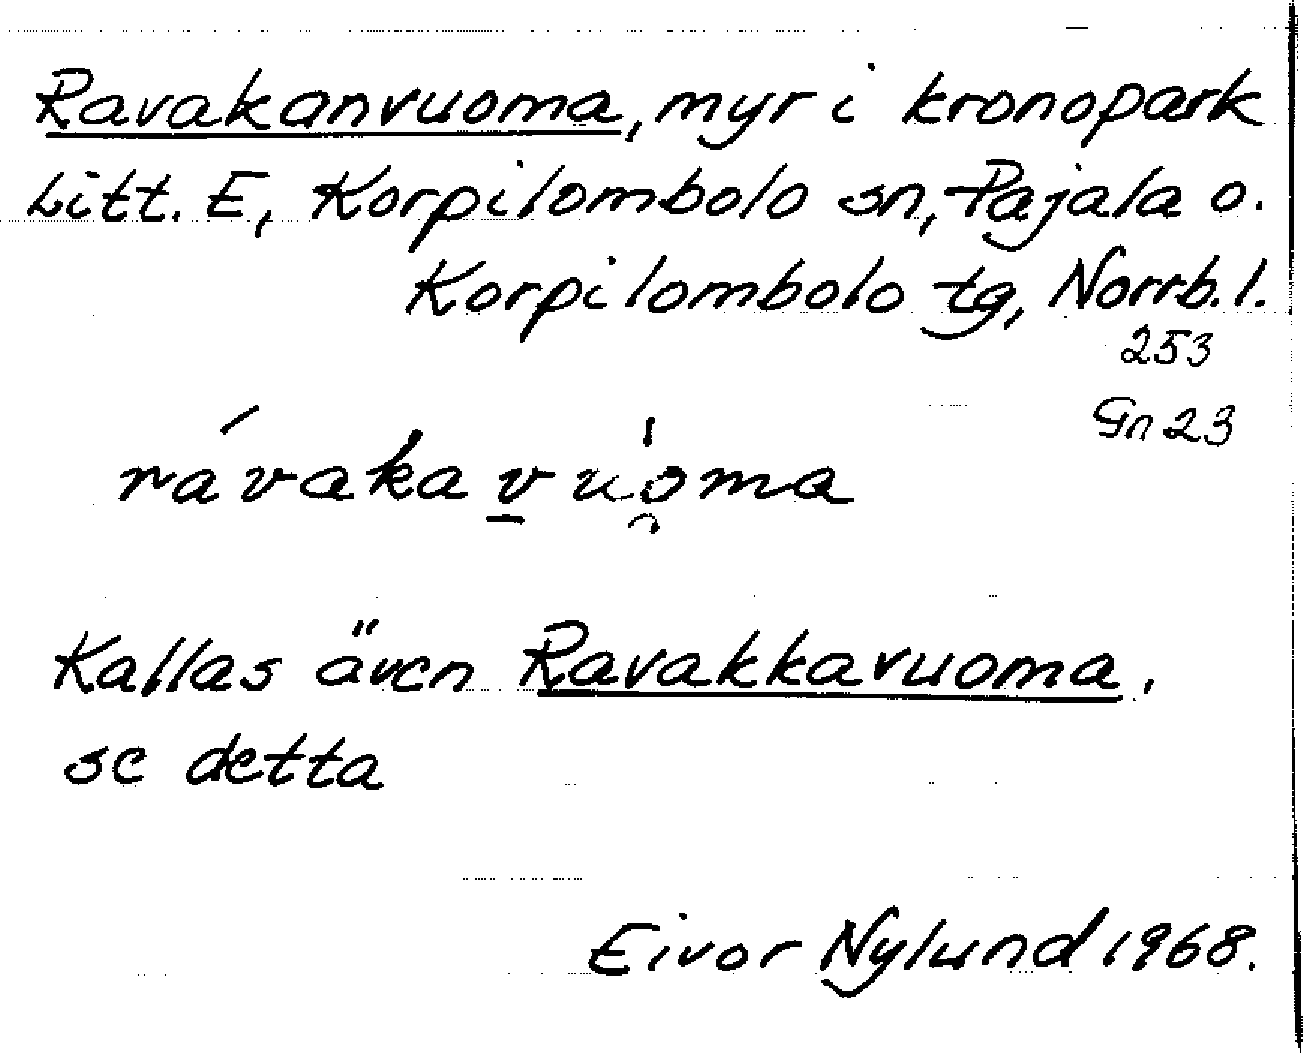 Ravakanvuoma, myr i kronopark
Litt. E, Korpilombolo sn, Pajala o.
Korpilombolo tg, Norrb. l.
253
Gn 23
rávaka v̲u̯o̍ma
Kallas även Ravakkavuoma,
se detta
Eivor Nylund 1968.